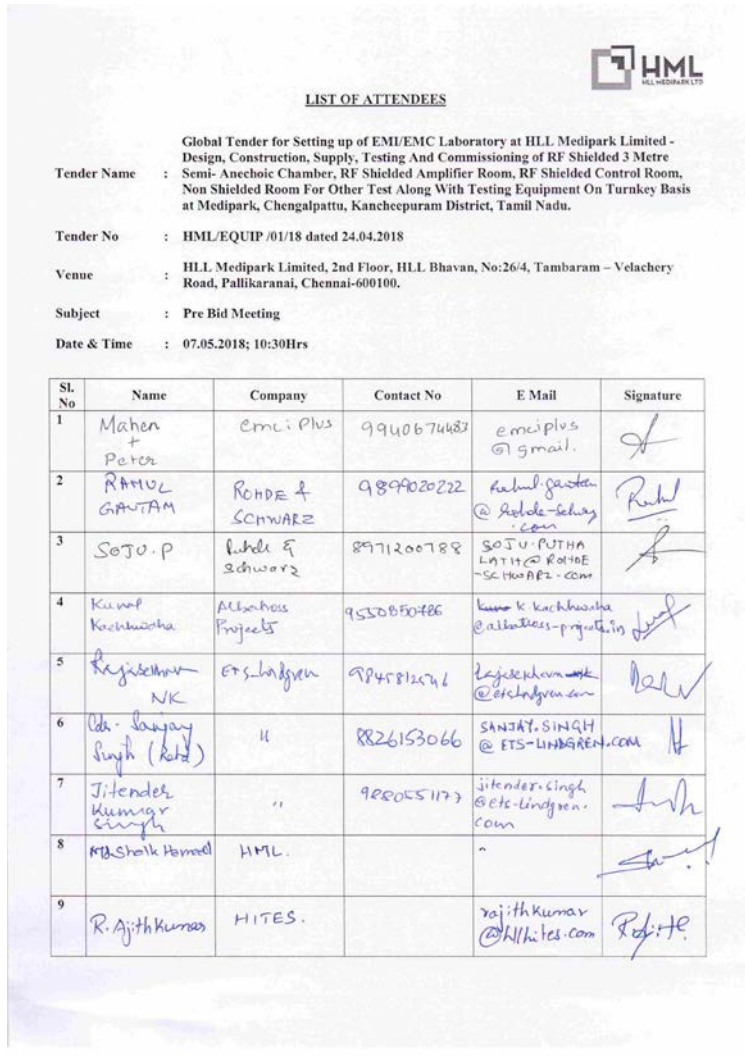 HML
HLL MEDIPARK LTD
LIST OF ATTENDEES
Tender Name : Global Tender for Setting up of EMI/EMC Laboratory at HLL Medipark Limited -
Design, Construction, Supply, Testing And Commissioning of RF Shielded 3 Metre
Semi- Anechoic Chamber, RF Shielded Amplifier Room, RF Shielded Control Room,
Non Shielded Room For Other Test Along With Testing Equipment On Turnkey Basis
at Medipark, Chengalpattu, Kancheepuram District, Tamil Nadu.
Tender No : HML/EQUIP /01/18 dated 24.04.2018
Venue : HLL Medipark Limited, 2nd Floor, HLL Bhavan, No:26/4, Tambaram – Velachery
Road, Pallikaranai, Chennai-600100.
Subject : Pre Bid Meeting
Date & Time : 07.05.2018; 10:30Hrs
Sl. No Name Company Contact No E Mail Signature
1 Mahen + Peter emci Plus 9940674483 emciplus @ gmail.
2 RAHUL GAUTAM ROHDE & SCHWARZ 9899020222 Rahul.gautam @ rohde-schwarz .com Rahul
3 SOJU.P Rohde & Schwarz 8971200788 SOJU.PUTHA LATH@ ROHDE -SCHWARZ.COM
4 Kunal Kachhwaha Albatross Projects 9550850786 k.kachhwaha @albatross-projects.in
5 Rajasekharan NK ETS-Lindgren @etslindgren.com
6 Cdr. Sanjay Singh (Retd) " 8826153066 SANJAY.SINGH @ ETS-LINDGREN.COM
7 Jitender Kumar Singh " 9880551177 jitender.singh @ets-lindgren. com
8 Md Shaik Hameed HML. -
9 R. Ajith Kumar HITES. rajithkumar @hllhites.com Rajith.